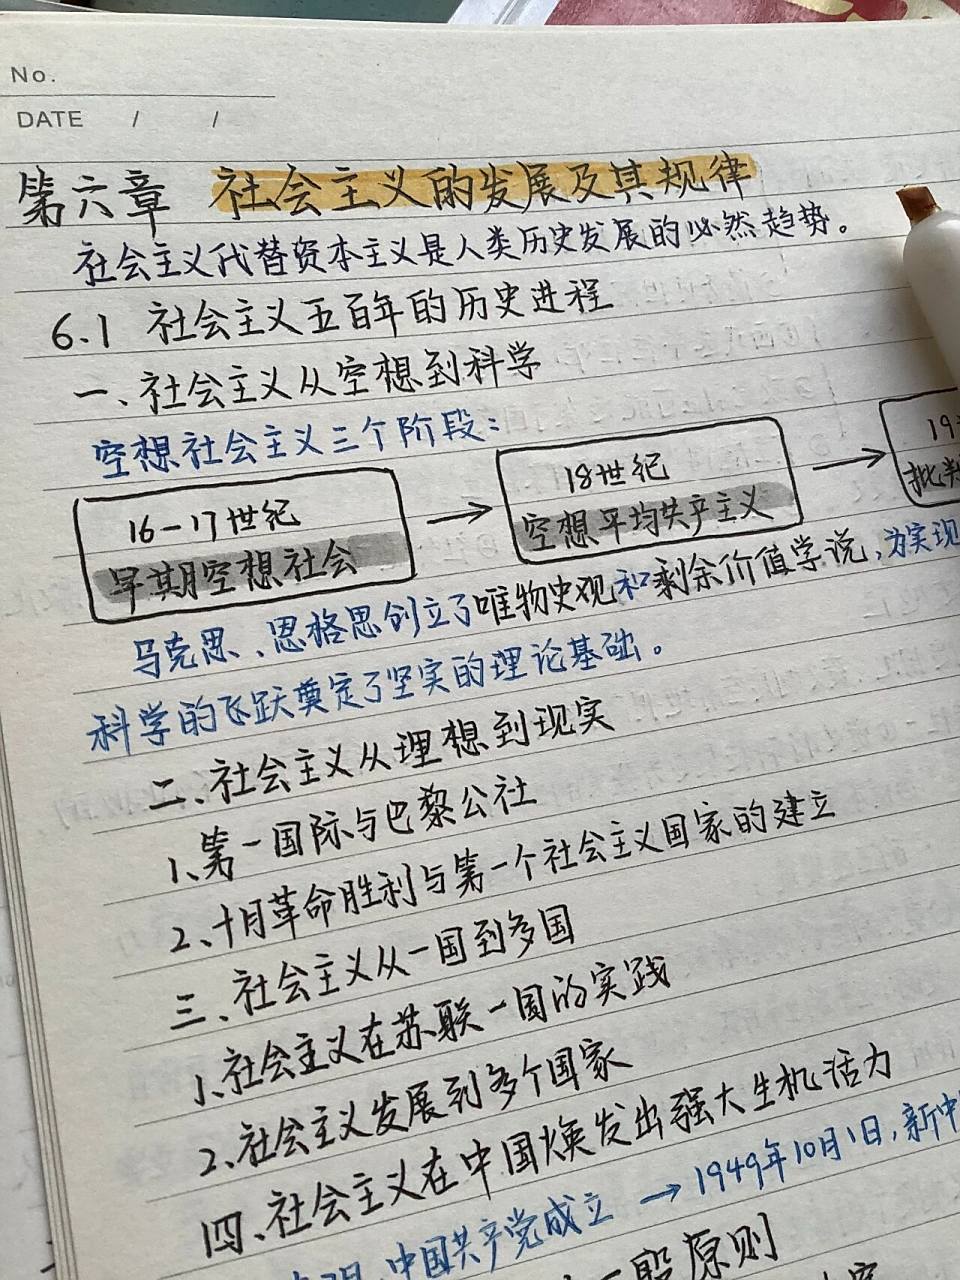 No.
DATE / /
第六章 社会主义的发展及其规律
社会主义代替资本主义是人类历史发展的必然趋势。
6.1 社会主义五百年的历史进程
一、社会主义从空想到科学
空想社会主义三个阶段:
16-17世纪
早期空想社会
18世纪
空想平均共产主义
19
批判
马克思、恩格思创立了唯物史观和剩余价值学说,为实现
科学的飞跃奠定了坚实的理论基础。
二、社会主义从理想到现实
1、第一国际与巴黎公社
2、十月革命胜利与第一个社会主义国家的建立
三、社会主义从一国到多国
1、社会主义在苏联一国的实践
2、社会主义发展到多个国家
四、社会主义在中国焕发出强大生机活力
中国共产党成立 → 1949年10月1日,新中
一般原则